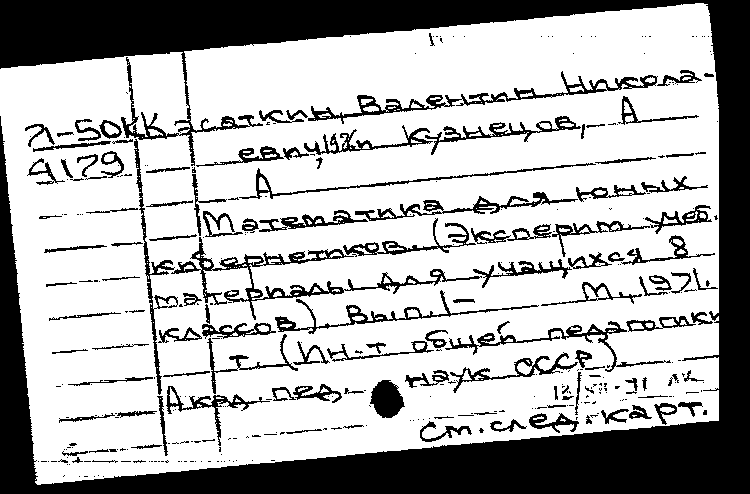 Я-50КК Касаткин, Валентин Никола-
4179 евич, и Кузнецов, А
А
Математика для юных
кибернетиков. (Эксперим. учеб.
материалы для учащихся 8
классов). Вып. 1- М., 1971.
т. (Ин-т общей педагогики
Акад. пед. наук СССР).
См. след. карт.